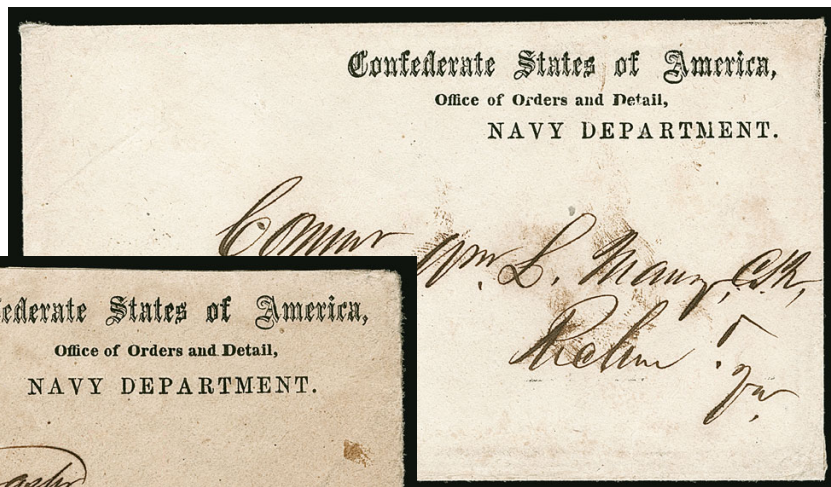 Confederate States of America,
Office of Orders and Detail,
NAVY DEPARTMENT.
Comdr Wm. L. Maury, CSN,
Richm
Va.
federate States of America,
Office of Orders and Detail,
NAVY DEPARTMENT.